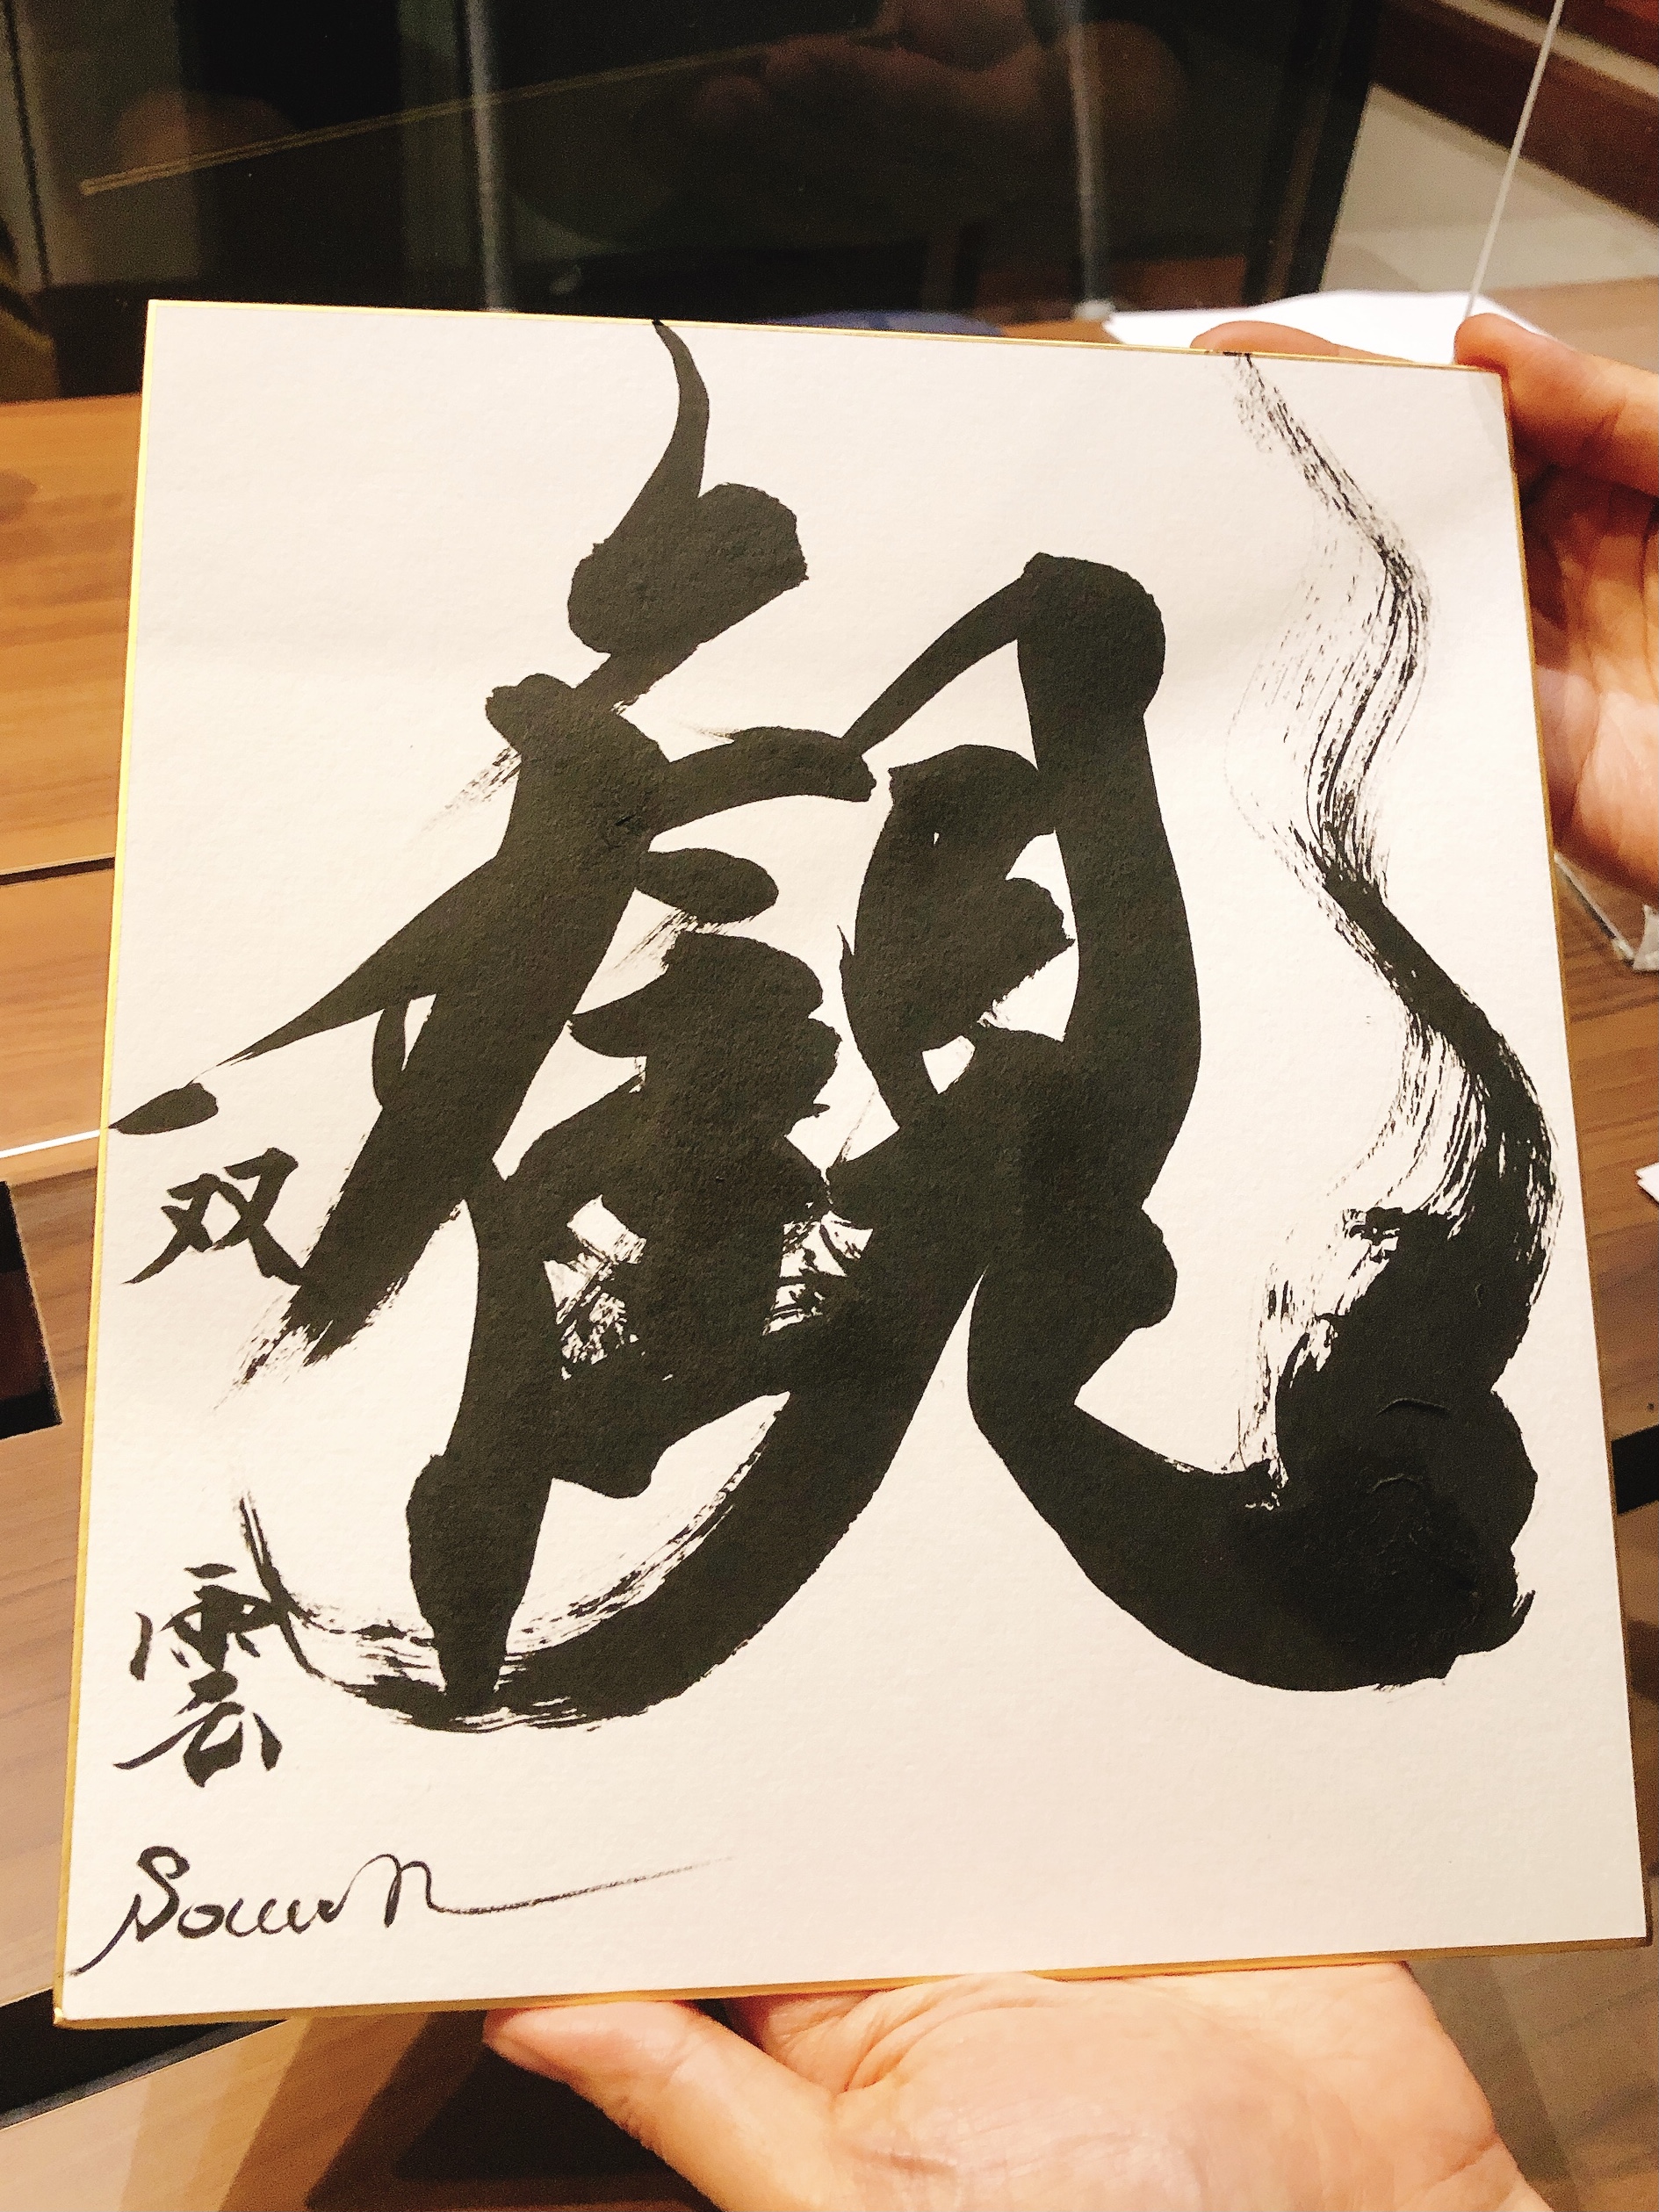 観
双
雲
Souun